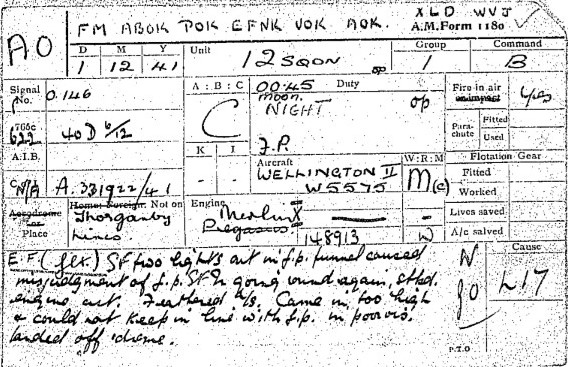 XLD WVJ
FM ABOK POK EFNK VOK AOK. A.M. Form 1180
AO
D M Y Unit Group Command
1 12 41 12 SQDN op 1 B
Signal No. 0.146 A : B : C 00.45 Duty Fire in air yes
moon.
C NIGHT op
765c 40D 6/12 Parachute Fitted
622 Used
A.I.B. K I F.P. Aircraft W : R : M Flotation Gear
- - WELLINGTON II M(c) Fitted
W5575 Worked
A. 331922/41
Home: Foreign: Not on Engine Merlin X Lives saved
Aerodrome Thorganby Pegasus
Place Lincs. 148913 W A/c salved
E.F. SF two lights out in f.p. funnel caused N Cause
misjudgment of f.p. SF in going round again, stbd. 90 L17
engine cut. Feathered a/s. Came in too high
& could not keep in line with f.p. in poor vis.
landed off 'drome.
P.T.O